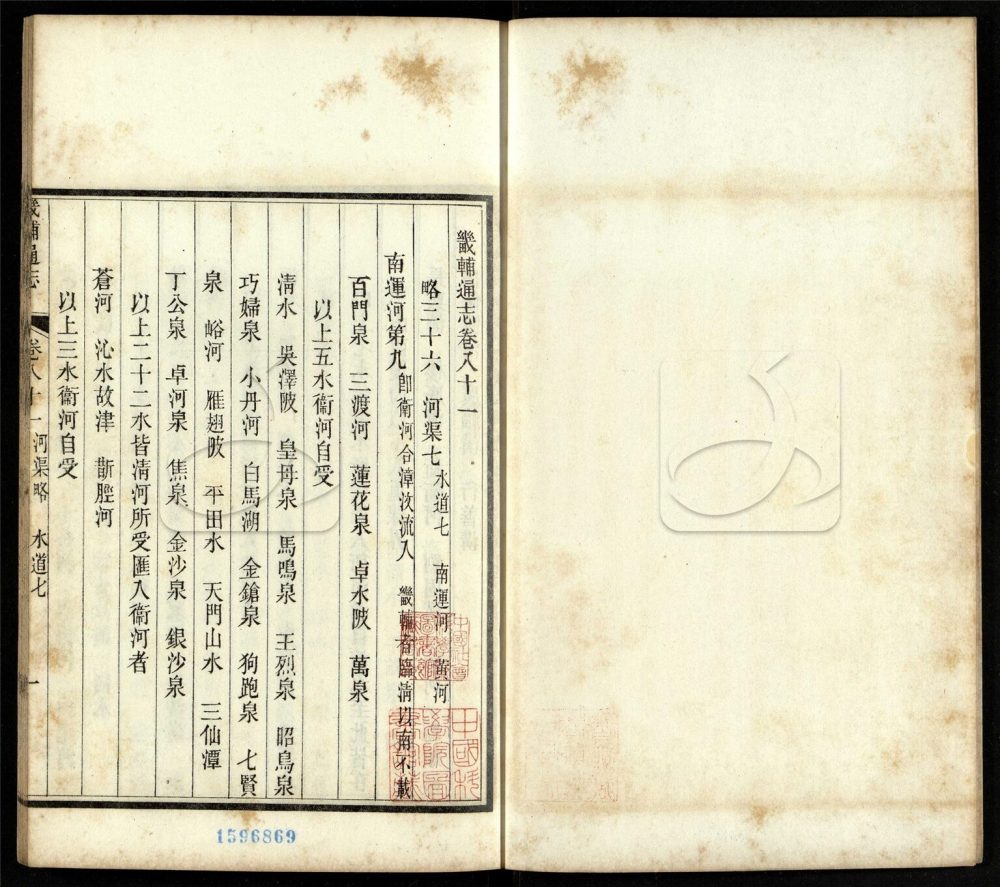 畿輔通志卷八十一
略三十六 河渠七 水道七 南運河 黃河
南運河第九 即衞河合漳汶流入 畿輔者臨淸以南不載
百門泉 三渡河 蓮花泉 卓水陂 萬泉
以上五水衞河自受
淸水 吳澤陂 皇母泉 馬鳴泉 王烈泉 昭烏泉
巧婦泉 小丹河 白馬湖 金鎗泉 狗跑泉 七賢
泉 峪河 雁翅陂 平田水 天門山水 三仙潭
丁公泉 卓河泉 焦泉 金沙泉 銀沙泉
以上二十二水皆淸河所受匯入衞河者
蒼河 沁水故津 㫁脛河
以上三水衞河自受
畿輔通志 卷八十一 河渠略 水道七 一
1596869